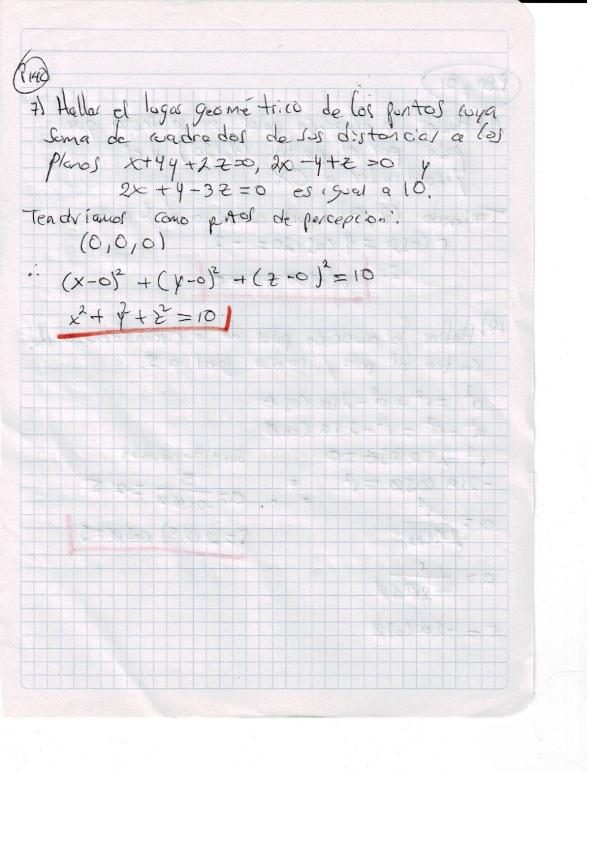 P140
7) Hallar el lugar geométrico de los puntos cuya
suma de cuadrados de sus distancias a los
planos x+4y+2z=0, 2x-y+z=0 y
2x+y-3z=0 es igual a 10.
Tendríamos como ptos de percepcion:
(0,0,0)
∴ (x-0)² + (y-0)² + (z-0)² = 10
x² + y² + z² = 10